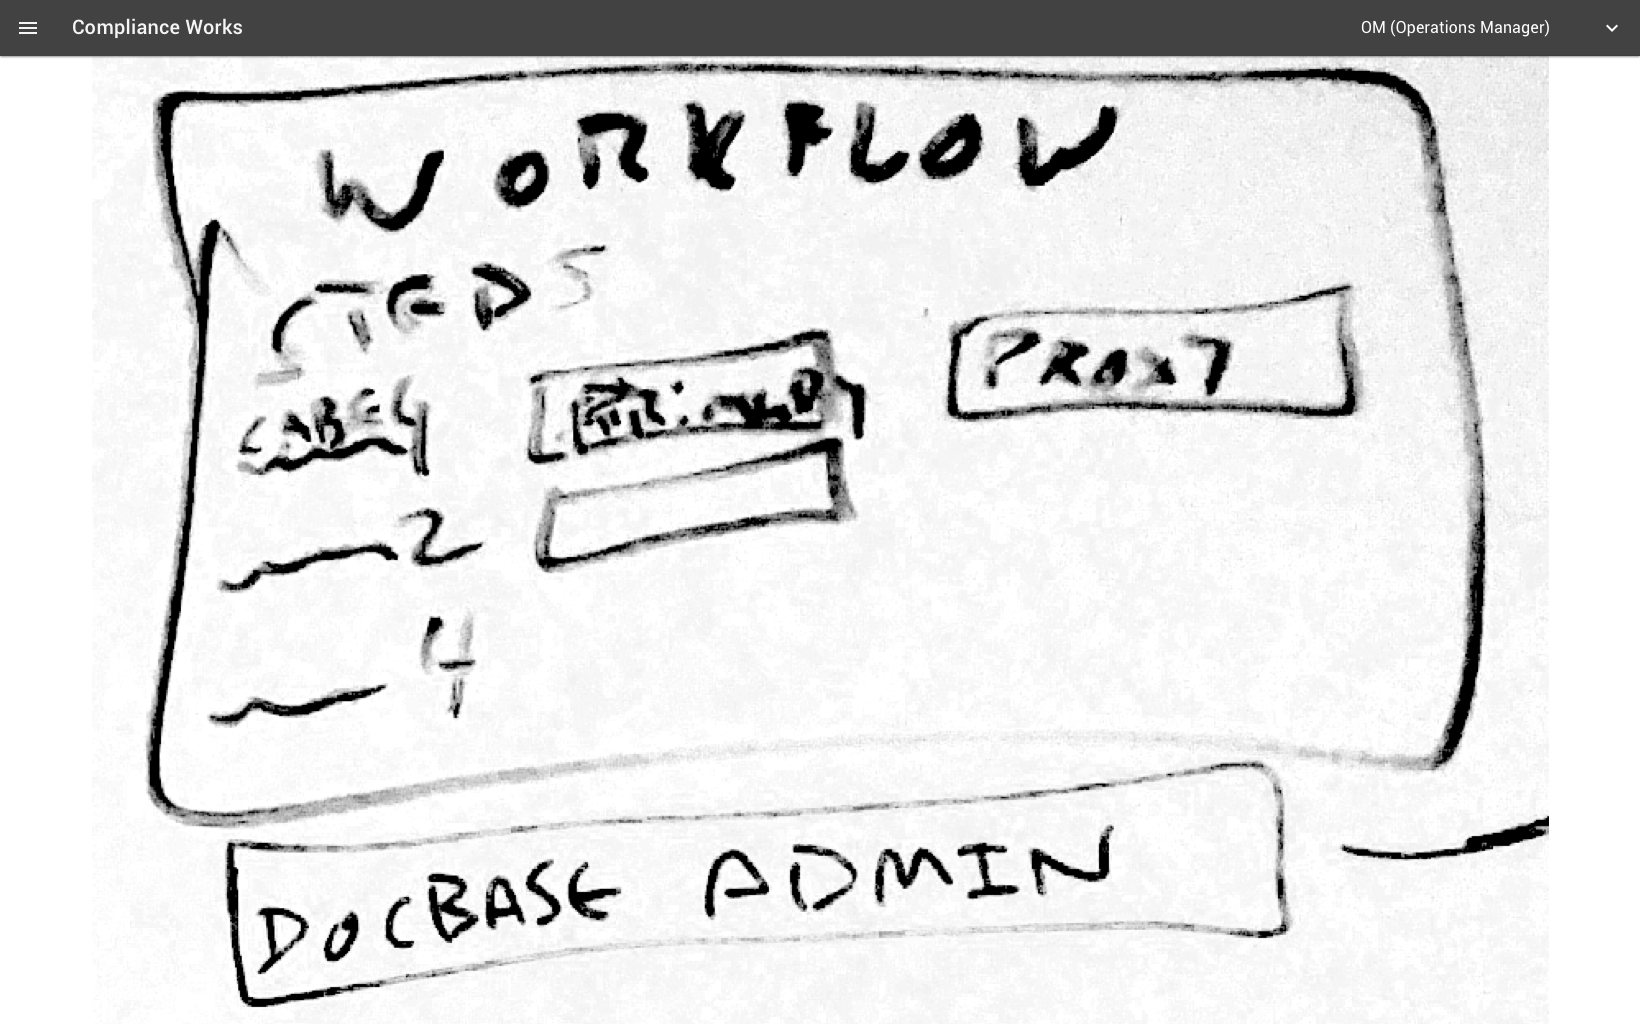 Compliance Works
OM (Operations Manager)
WORKFLOW
STEPS
PROXY
2
4
DOCBASE ADMIN